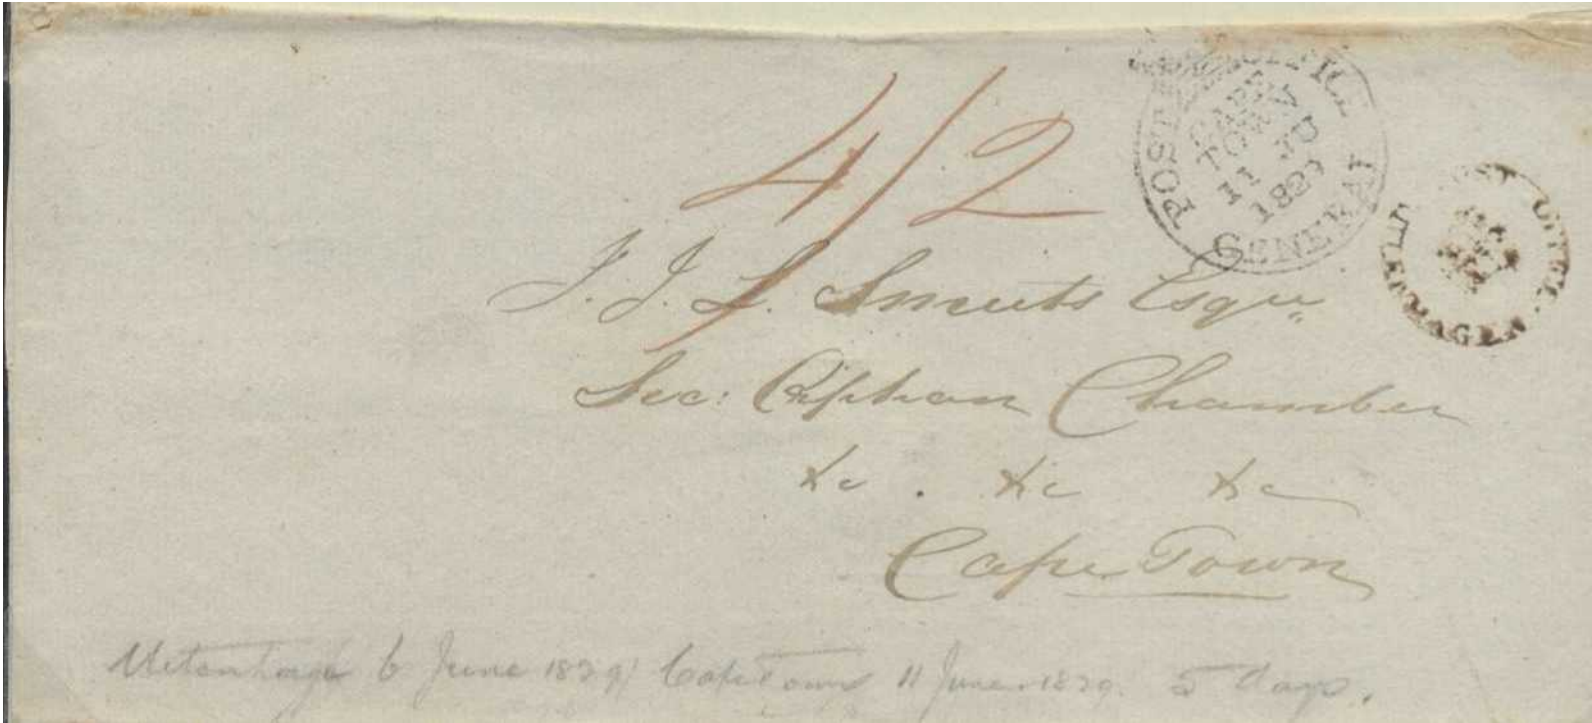 4/2
GENERAL POST OFFICE
CAPE
TOWN
11 JU
1829
POST OFFICE
UITENHAGEN
J. J. L. Smuts Esqre
Sec: Orphan Chamber
&c . &c &c
Cape Town
Uitenhage 6 June 1829 / Cape Town 11 June. 1829. 5 days.